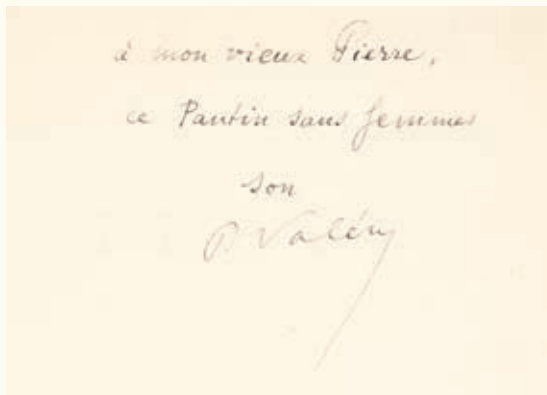 à mon vieux Pierre,
ce Pantin sans femmes
son
P Valéry